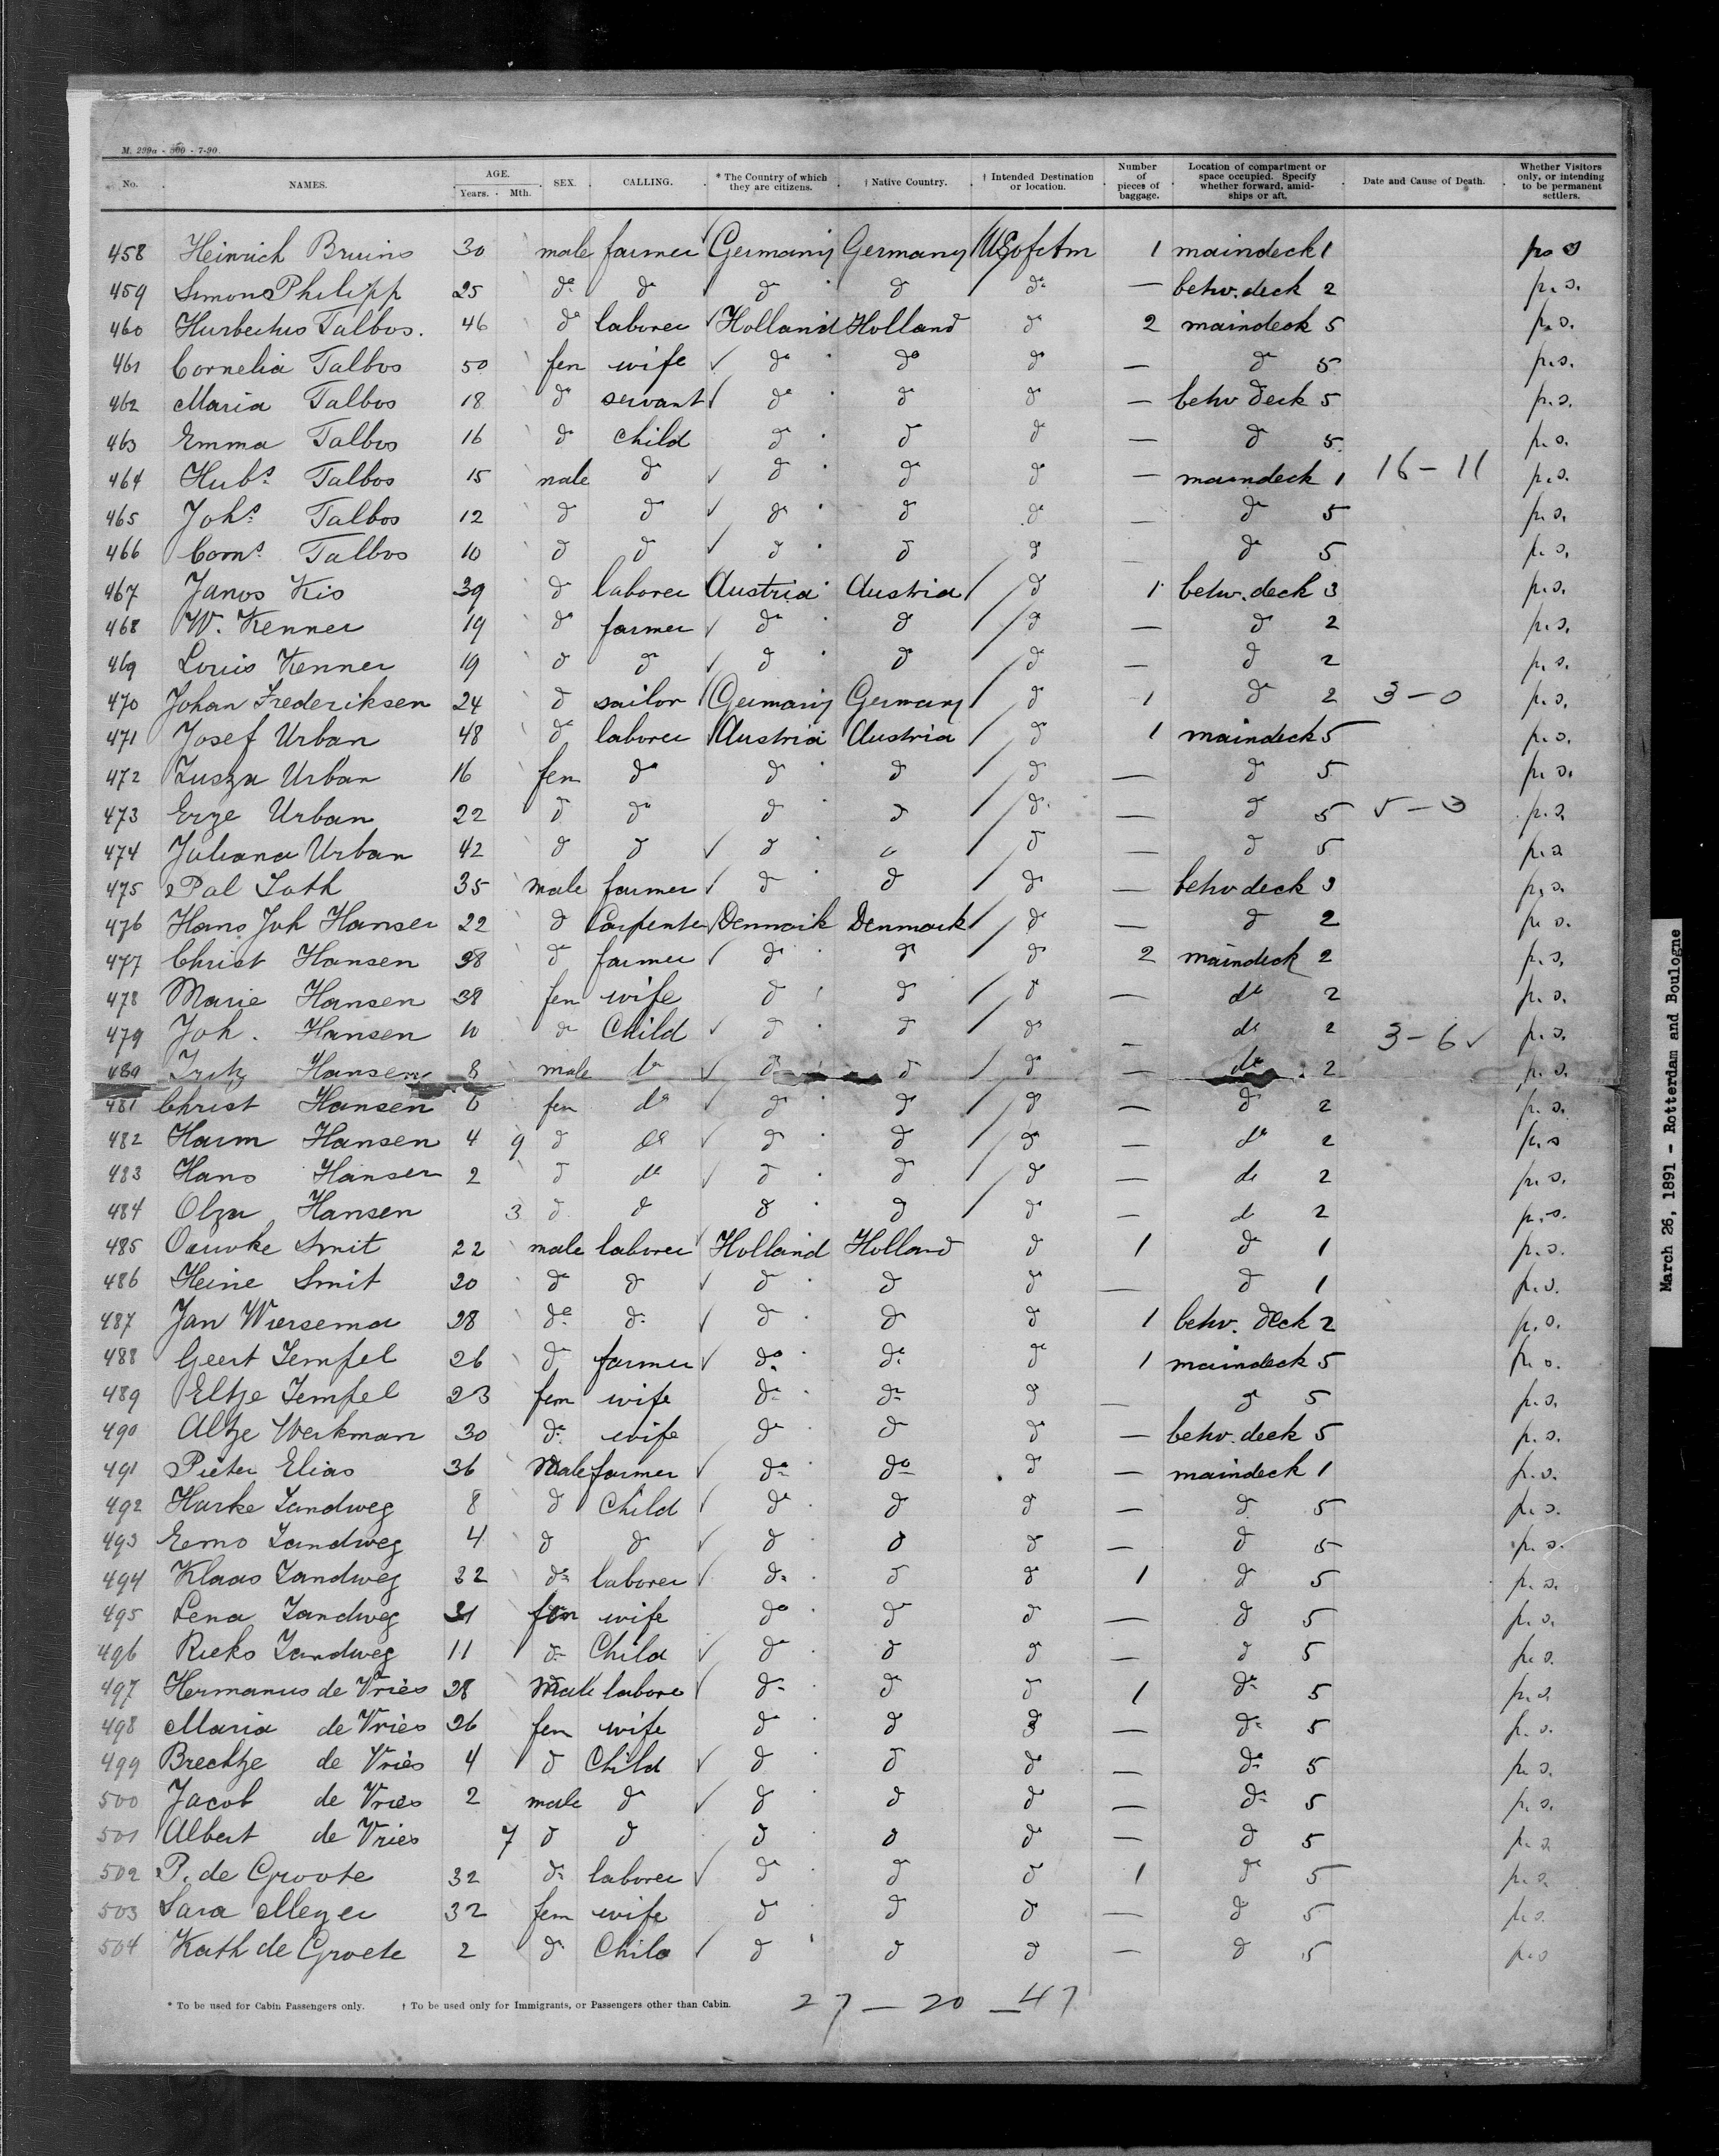 M. 299a - 500 - 7-90.
No. NAMES. AGE. Years. Mth. SEX. CALLING. * The Country of which they are citizens. † Native Country. † Intended Destination or location. Number of pieces of baggage. Location of compartment or space occupied. Specify whether forward, amidships or aft. Date and Cause of Death. Whether Visitors only, or intending to be permanent settlers.
458 Heinrich Bruins 30 male farmer Germany Germany US of Am 1 maindeck 1 p. s.
459 Simons Philipp 25 do do do do do — betw. deck 2 p. s.
460 Hurbertus Talbos. 46 do laborer Holland Holland do 2 maindeck 5 p. s.
461 Cornelia Talbos 50 fem wife do do do — do 5 p. s.
462 Maria Talbos 18 do servant do do do — betw deck 5 p. s.
463 Emma Talbos 16 do child do do do — do 5 p. s.
464 Hubs. Talbos 15 male do do do do — maindeck 1 16 - 11 p. s.
465 Johs. Talbos 12 do do do do do — do 5 p. s.
466 Corns. Talbos 10 do do do do do — do 5 p. s.
467 Janos Kis 39 do laborer Austria Austria do 1 betw. deck 3 p. s.
468 W. Kenner 19 do farmer do do do — do 2 p. s.
469 Louis Kenner 19 do do do do do — do 2 p. s.
470 Johan Frederiksen 24 do sailor Germany Germany do 1 do 2 3 - 0 p. s.
471 Josef Urban 48 do laborer Austria Austria do 1 maindeck 5 p. s.
472 Zusza Urban 16 fem do do do do — do 5 p. s.
473 Erze Urban 22 do do do do do — do 5 5 - 3 p. s.
474 Juliana Urban 42 do do do do do — do 5 p. s.
475 Pal Toth 35 male farmer do do do — betw deck 3 p. s.
476 Hans Joh Hansen 22 do Carpenter Denmark Denmark do — do 2 p. s.
477 Christ Hansen 38 do farmer do do do 2 maindeck 2 p. s.
478 Marie Hansen 38 fem wife do do do — do 2 p. s.
479 Joh. Hansen 10 do Child do do do — do 2 3 - 6 p. s.
480 Fritz Hansen 8 male do do do do — do 2 p. s.
481 Christ Hansen 6 fem do do do do — do 2 p. s.
482 Harm Hansen 4 9 do do do do do — do 2 p. s
483 Hans Hansen 2 do do do do do — do 2 p. s.
484 Olga Hansen 3 do do do do do — do 2 p. s.
485 Oauvke Smit 22 male laborer Holland Holland do 1 do 1 p. s.
486 Heine Smit 20 do do do do do — do 1 p. s.
487 Jan Wiersema 28 do do do do do 1 betw. deck 2 p. s.
488 Geert Tempel 26 do farmer do do do 1 maindeck 5 p. s.
489 Eltje Tempel 23 fem wife do do do — do 5 p. s.
490 Altje Werkman 30 do wife do do do — betw. deck 5 p. s.
491 Pieter Elias 36 male farmer do do do — maindeck 1 p. s.
492 Harke Zandweg 8 do Child do do do — do 5 p. s.
493 Eemo Zandweg 4 do do do do do — do 5 p. s.
494 Klaas Zandweg 32 do laborer do do do 1 do 5 p. s.
495 Lena Zandweg 31 fem wife do do do — do 5 p. s.
496 Rieks Zandweg 11 do Child do do do — do 5 p. s.
497 Hermanus de Vries 28 Male labore do do do 1 do 5 p. s.
498 Maria de Vries 26 fem wife do do do — do 5 p. s.
499 Brechtje de Vries 4 do Child do do do — do 5 p. s.
500 Jacob de Vries 2 male do do do do — do 5 p. s.
501 Albert de Vries 7 do do do do do — do 5 p. s.
502 P. de Groote 32 do laborer do do do 1 do 5 p. s.
503 Sara Meyer 32 fem wife do do do — do 5 p. s.
504 Kath de Groete 2 do Child do do do — do 5 p. s
* To be used for Cabin Passengers only. † To be used only for Immigrants, or Passengers other than Cabin. 27 — 20 — 47
March 26, 1891 - Rotterdam and Boulogne